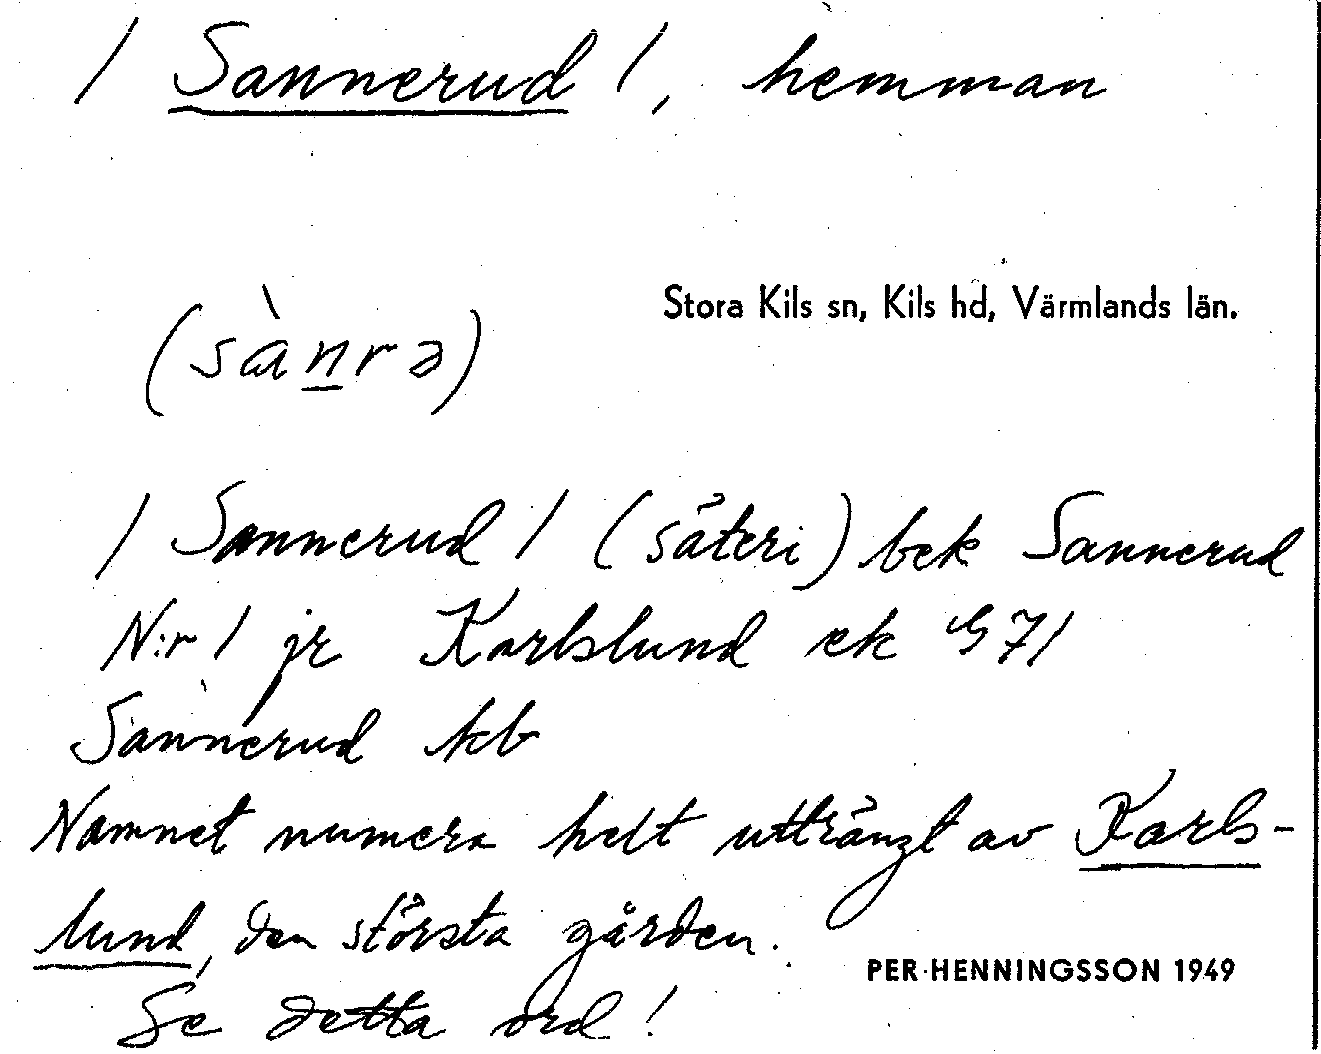 / Sannerud /, hemman
Stora Kils sn, Kils hd, Värmlands län.
(sànrə)
/ Sannerud / (säteri) bek Sannerud
N:r 1 jr Karlslund ek G 71
Sannerud kb
Namnet numera helt utträngt av Karls-
lund, den största gården.
PER HENNINGSSON 1949
Se detta ord!